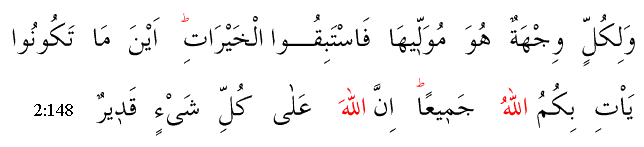 وَلِكُلٍّ وِجْهَةٌ هُوَ مُوَلّ۪يهَا فَاسْتَبِقُـــوا الْخَيْرَاتِۜ اَيْنَ مَا تَكُونُوا
يَأْتِ بِكُمُ اللّٰهُ جَم۪يعًاۜ اِنَّ اللّٰهَ عَلٰى كُلِّ شَىْءٍ قَد۪يرٌ 2:148